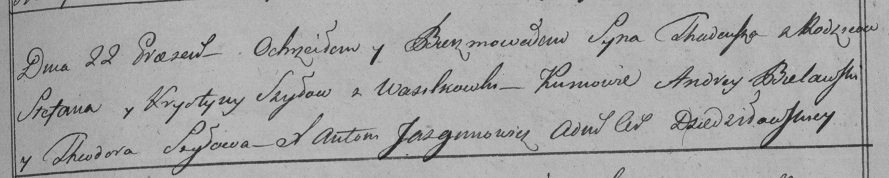 Dnia 22 Præsent Ochrzciłem y Bierzmowałem Syna Thadeusza z Rodziców
Stefana y Krystyny Szyłow z Wasilkowki Kumowie Andrey Bielawski
y Theodora Szyłowa X Antoni Jazgunowicz Adm Cer Dziedziłowskiey